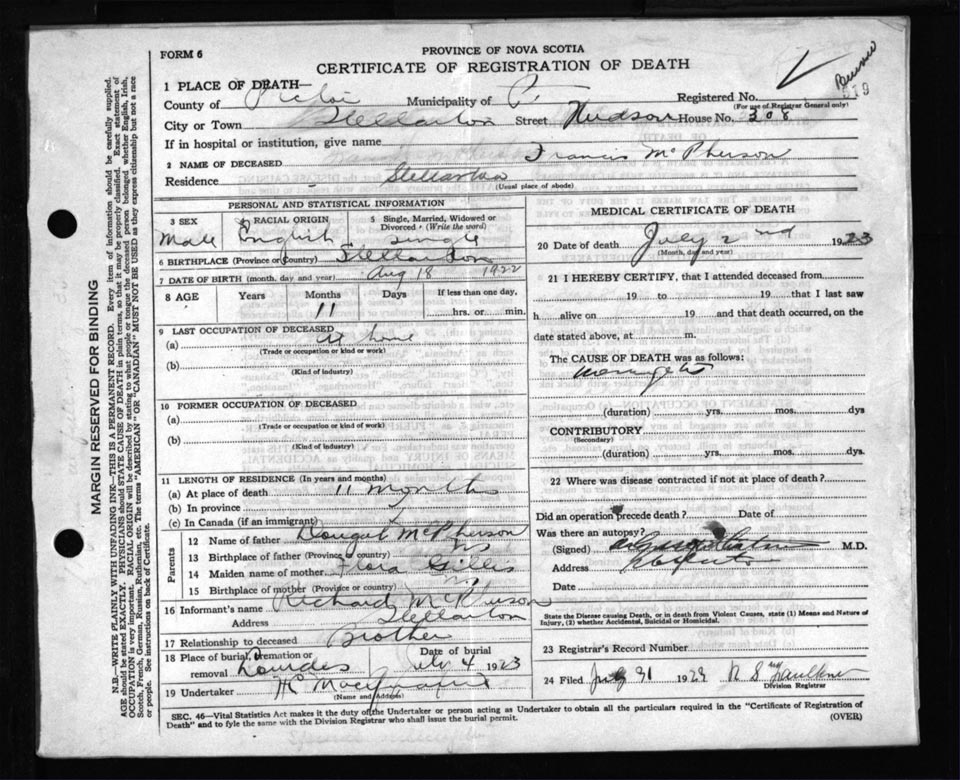 FORM 6
PROVINCE OF NOVA SCOTIA
CERTIFICATE OF REGISTRATION OF DEATH
1 PLACE OF DEATH—
County of Pictou Municipality of Registered No.
(For use of Registrar General only)
City or Town Stellarton Street Hudson House No. 308
If in hospital or institution, give name
2 NAME OF DECEASED Francis McPherson
Residence Stellarton
(Usual place of abode)
PERSONAL AND STATISTICAL INFORMATION
3 SEX 4 RACIAL ORIGIN 5 Single, Married, Widowed or Divorced (Write the word)
Male English single
6 BIRTHPLACE (Province or Country) Stellarton
7 DATE OF BIRTH (month, day and year) Aug 18 1922
8 AGE Years Months Days If less than one day,
11 hrs. or min.
9 LAST OCCUPATION OF DECEASED
(a) at home
(Trade or occupation or kind or work)
(b)
(Kind of industry)
10 FORMER OCCUPATION OF DECEASED
(a)
(Trade or occupation or kind or work)
(b)
(Kind of industry)
11 LENGTH OF RESIDENCE (In years and months)
(a) At place of death 11 months
(b) In province
(c) In Canada (if an immigrant)
Parents
12 Name of father Dougal McPherson
13 Birthplace of father (Province or country) NS
14 Maiden name of mother Flora Gillis
15 Birthplace of mother (Province or country)
16 Informant's name Richard McPherson
Address Stellarton
17 Relationship to deceased Brother
18 Place of burial, cremation or removal Lourdes Date of burial July 4 1923
19 Undertaker
(Name and Address)
MEDICAL CERTIFICATE OF DEATH
20 Date of death July 2nd 1923
(Month, day and year)
21 I HEREBY CERTIFY, that I attended deceased from
19 to 19 that I last saw
h alive on 19 and that death occurred, on the
date stated above, at m.
The CAUSE OF DEATH was as follows:
(duration) yrs. mos. dys
CONTRIBUTORY
(Secondary)
(duration) yrs. mos. dys.
22 Where was disease contracted if not at place of death?
Did an operation precede death? Date of
Was there an autopsy?
(Signed) M.D.
Address
Date
State the Disease causing Death, or in death from Violent Causes, state (1) Means and Nature of Injury, (2) whether Accidental, Suicidal or Homicidal.
23 Registrar's Record Number
24 Filed July 31 1923
Division Registrar
SEC. 46—Vital Statistics Act makes it the duty of the Undertaker or person acting as Undertaker to obtain all the particulars required in the "Certificate of Registration of
Death" and to fyle the same with the Division Registrar who shall issue the burial permit. (OVER)
MARGIN RESERVED FOR BINDING
N.B.—WRITE PLAINLY WITH UNFADING INK—THIS IS A PERMANENT RECORD. Every item of information should be carefully supplied.
AGE should be stated EXACTLY. PHYSICIANS should STATE CAUSE OF DEATH in plain terms, so that it may be properly classified. Exact statement of
OCCUPATION is very important. RACIAL ORIGIN will be described by stating to what people or tongue the deceased person belonged whether English, Irish,
Scotch, French, German, Russian, Ruthenian, etc. The terms "AMERICAN" OR "CANADIAN" MUST NOT BE USED as they express citizenship but not a race
or people. See instructions on back of Certificate.